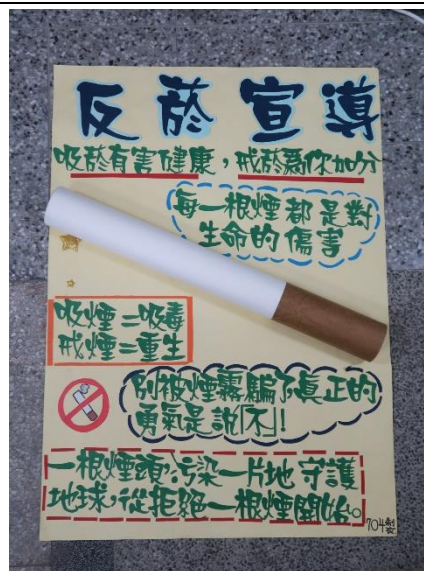 反菸宣導
吸菸有害健康,戒菸為你加分
每一根煙都是對
生命的傷害
吸煙=吸毒
戒煙=重生
別被煙霧騙了真正的
勇氣是說「不」!
一根煙頭,污染一片地守護
地球,從拒絕一根煙開始。
704製